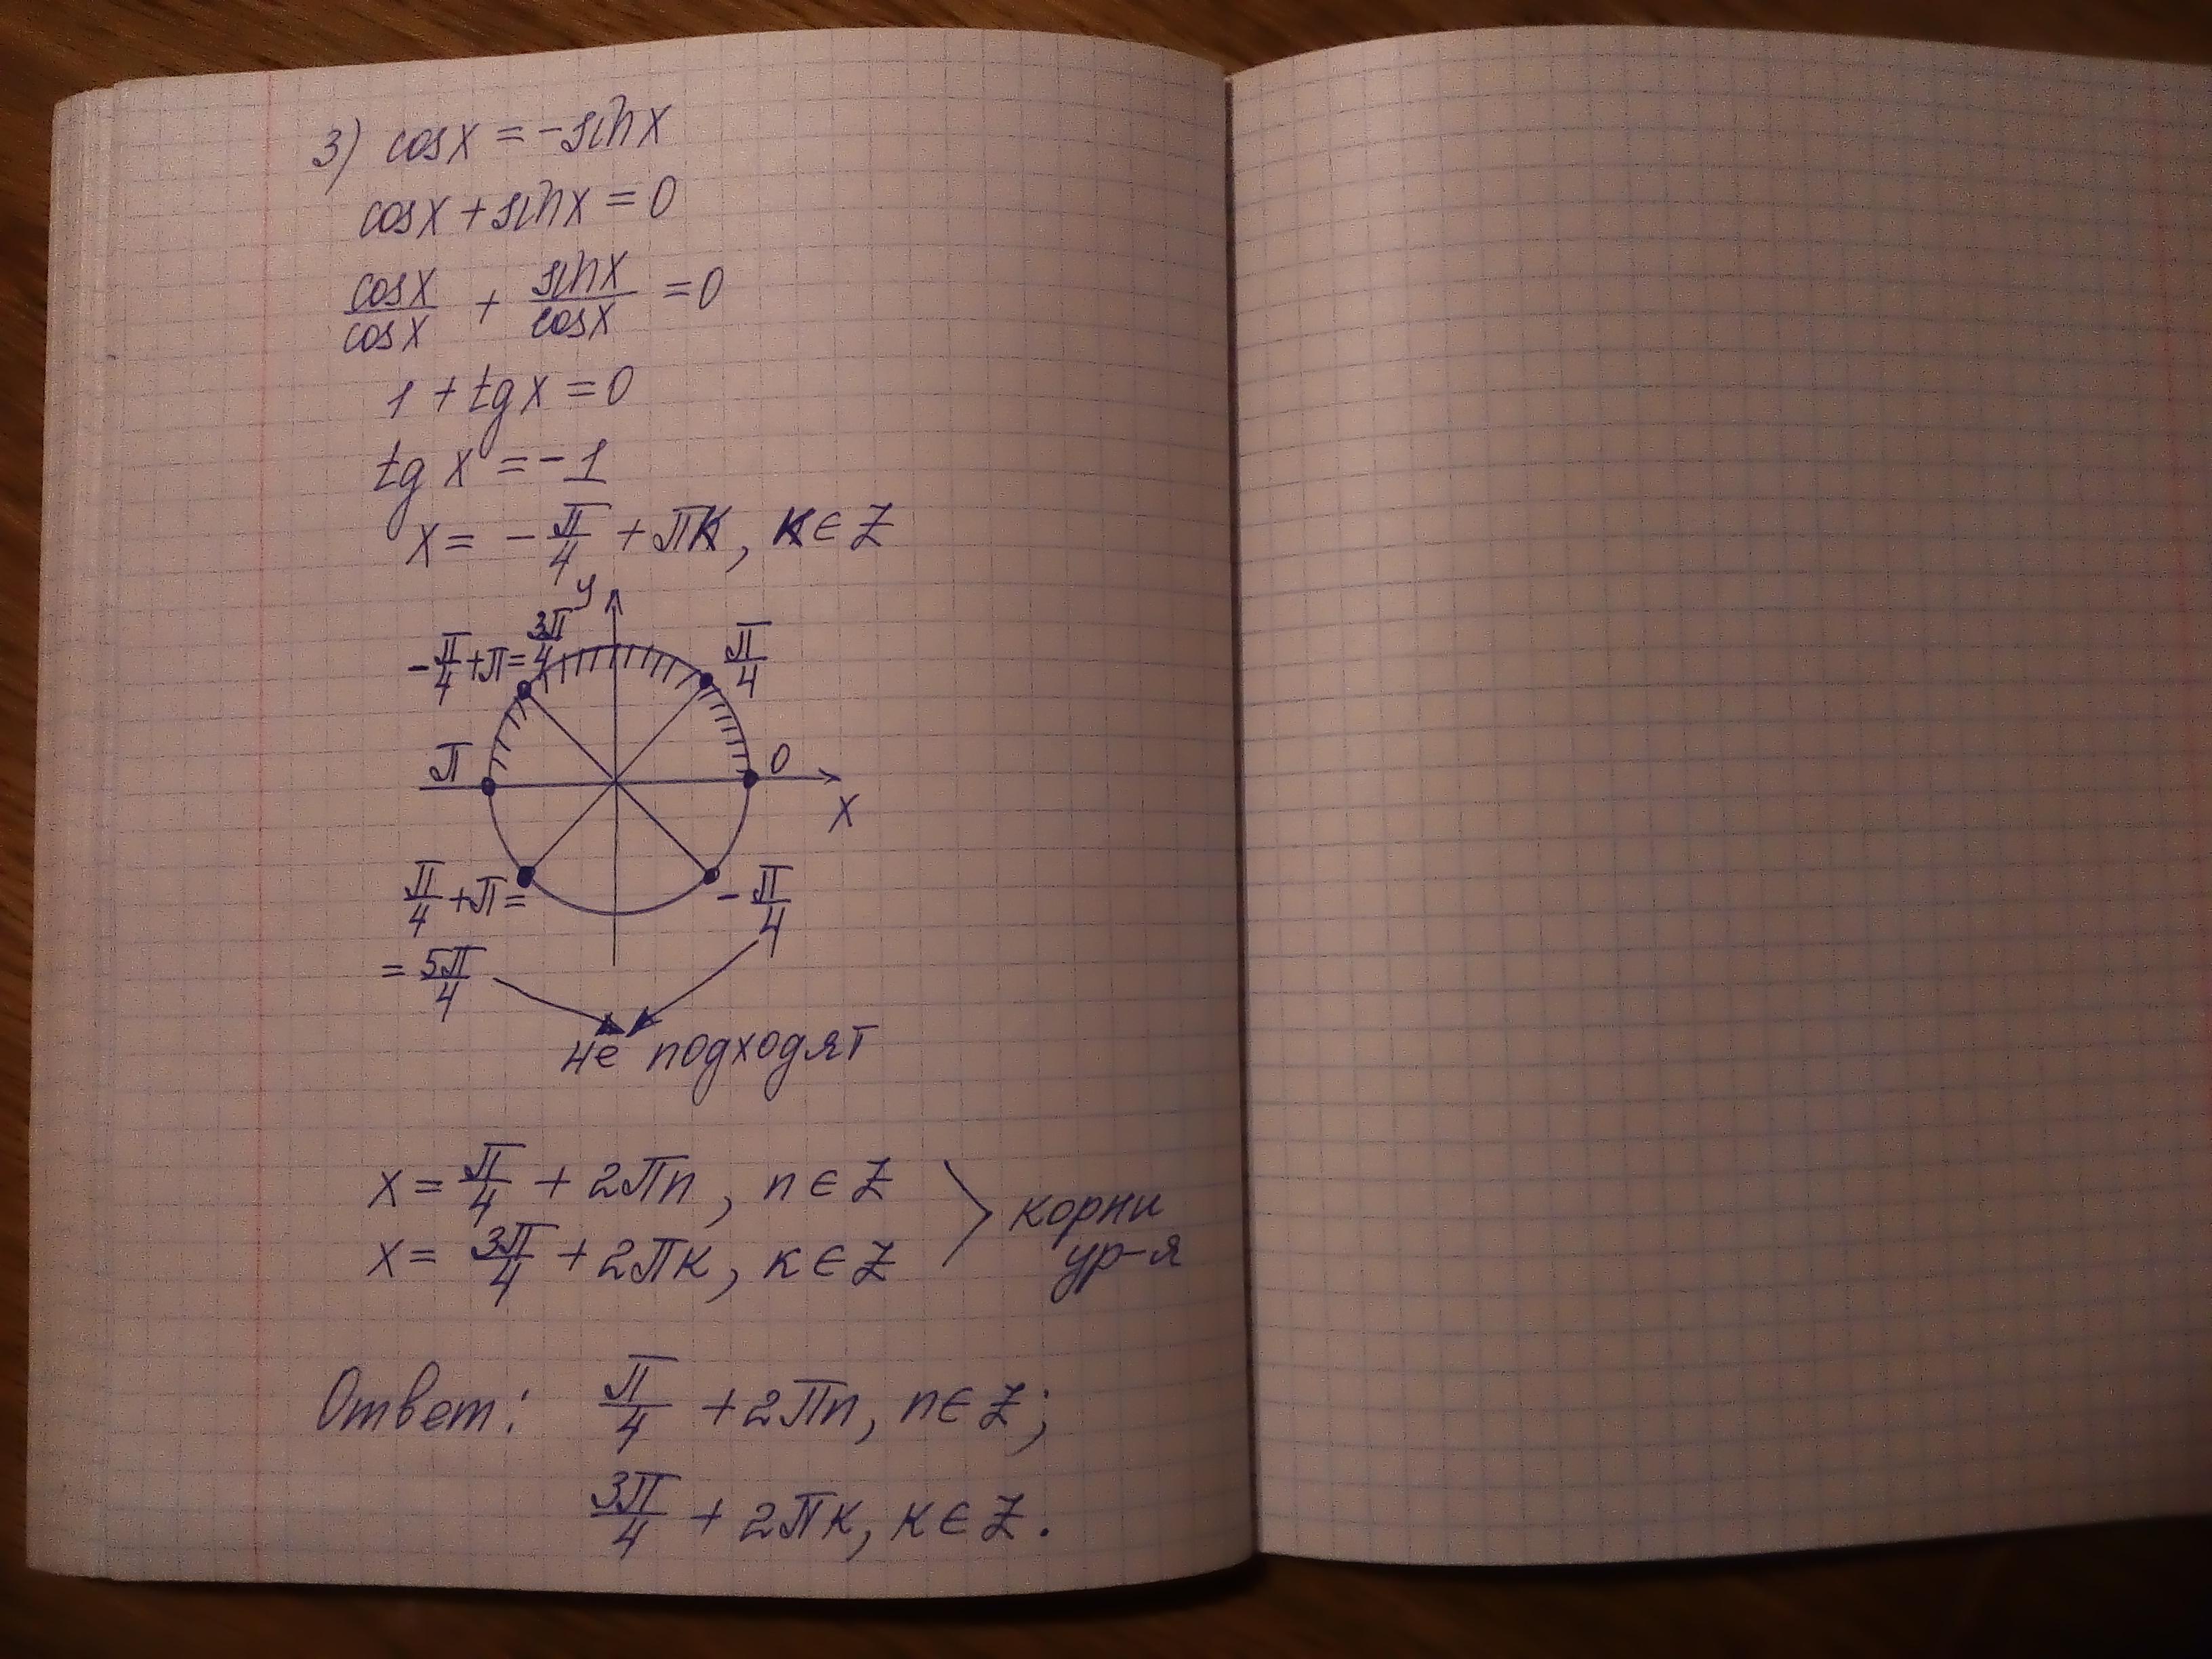 3) cosx = -sinx
cosx + sinx = 0
cosx/cosx + sinx/cosx = 0
1 + tgx = 0
tgx = -1
x = -π/4 + πк, к ∈ Z
y
-π/4 + π = 3π/4
π/4
π
0
x
π/4 + π =
-π/4
= 5π/4
не подходят
x = π/4 + 2πn, n ∈ Z
x = 3π/4 + 2πк, к ∈ Z
корни
ур-я
Ответ: π/4 + 2πn, n ∈ Z;
3π/4 + 2πк, к ∈ Z.